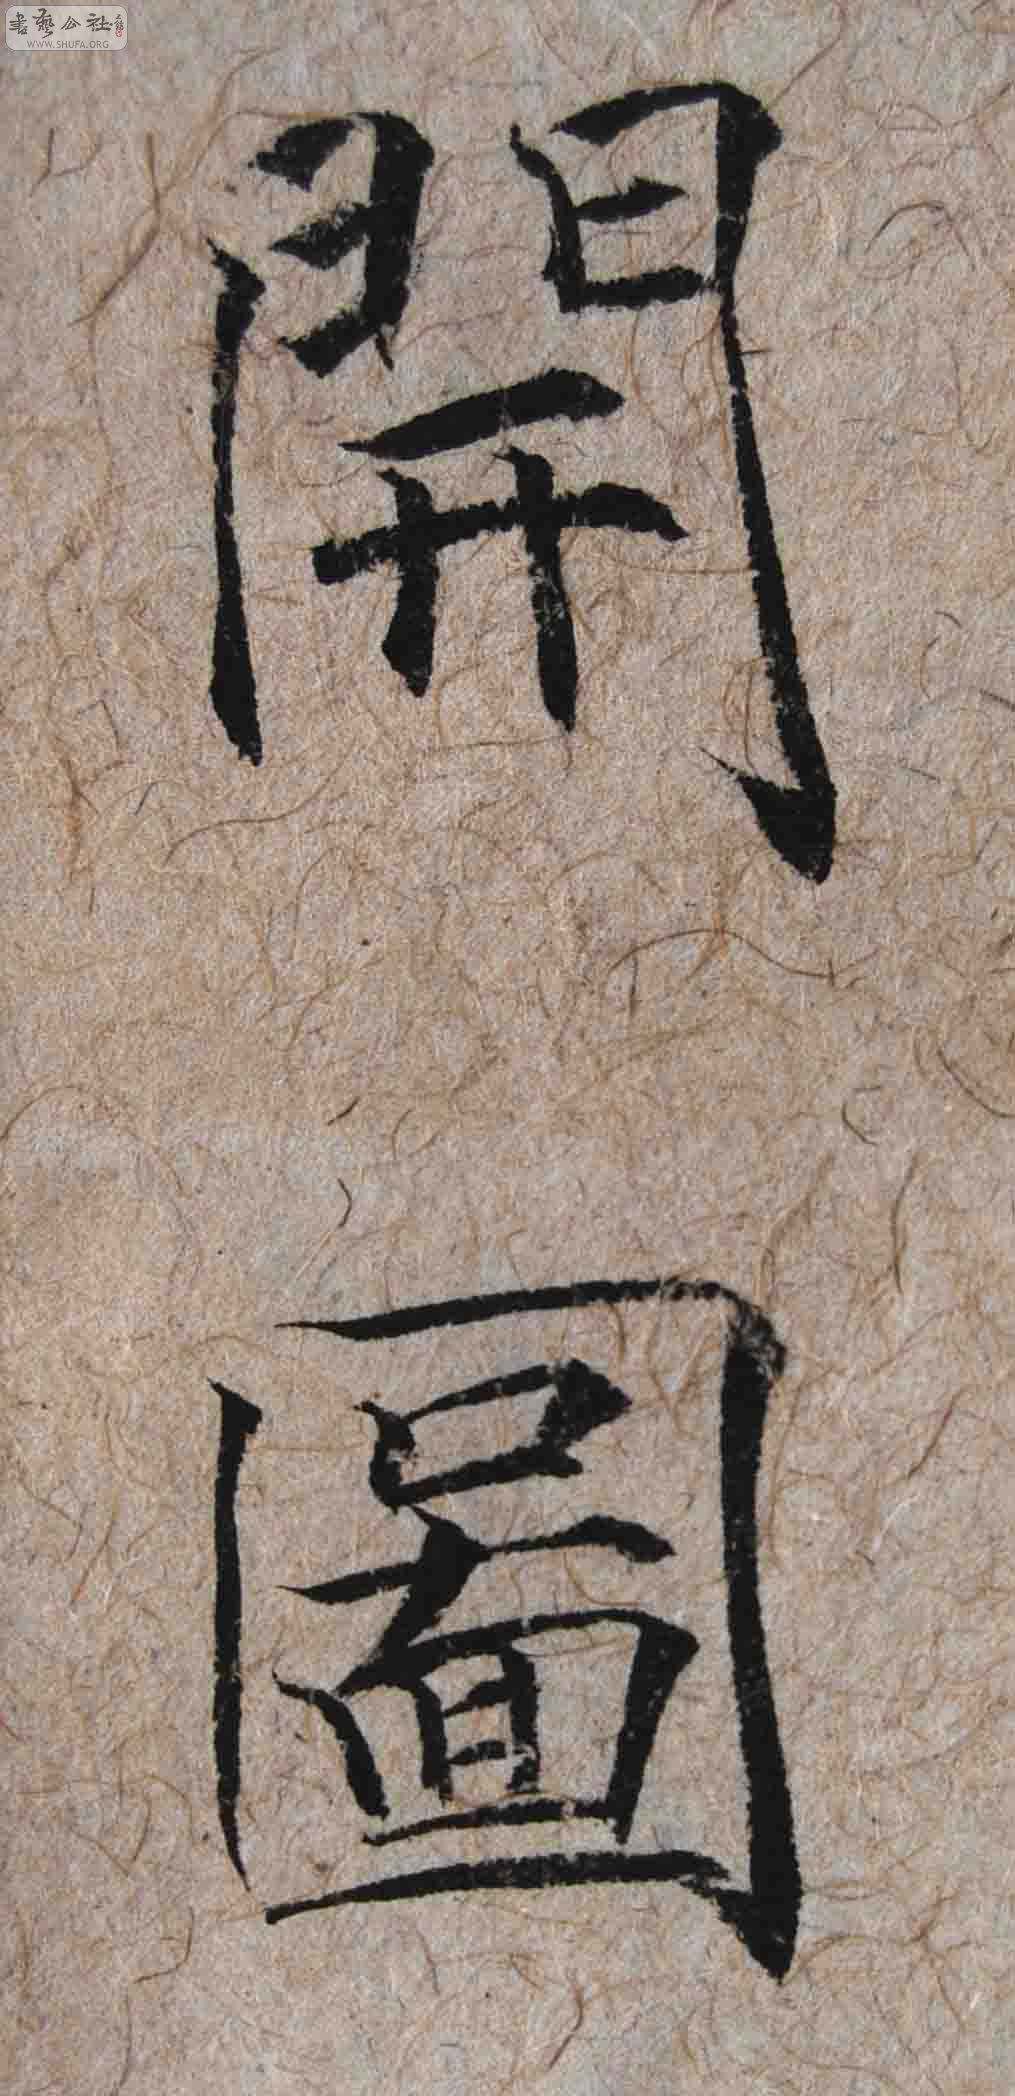 書藝公社
WWW.SHUFA.ORG
開圖